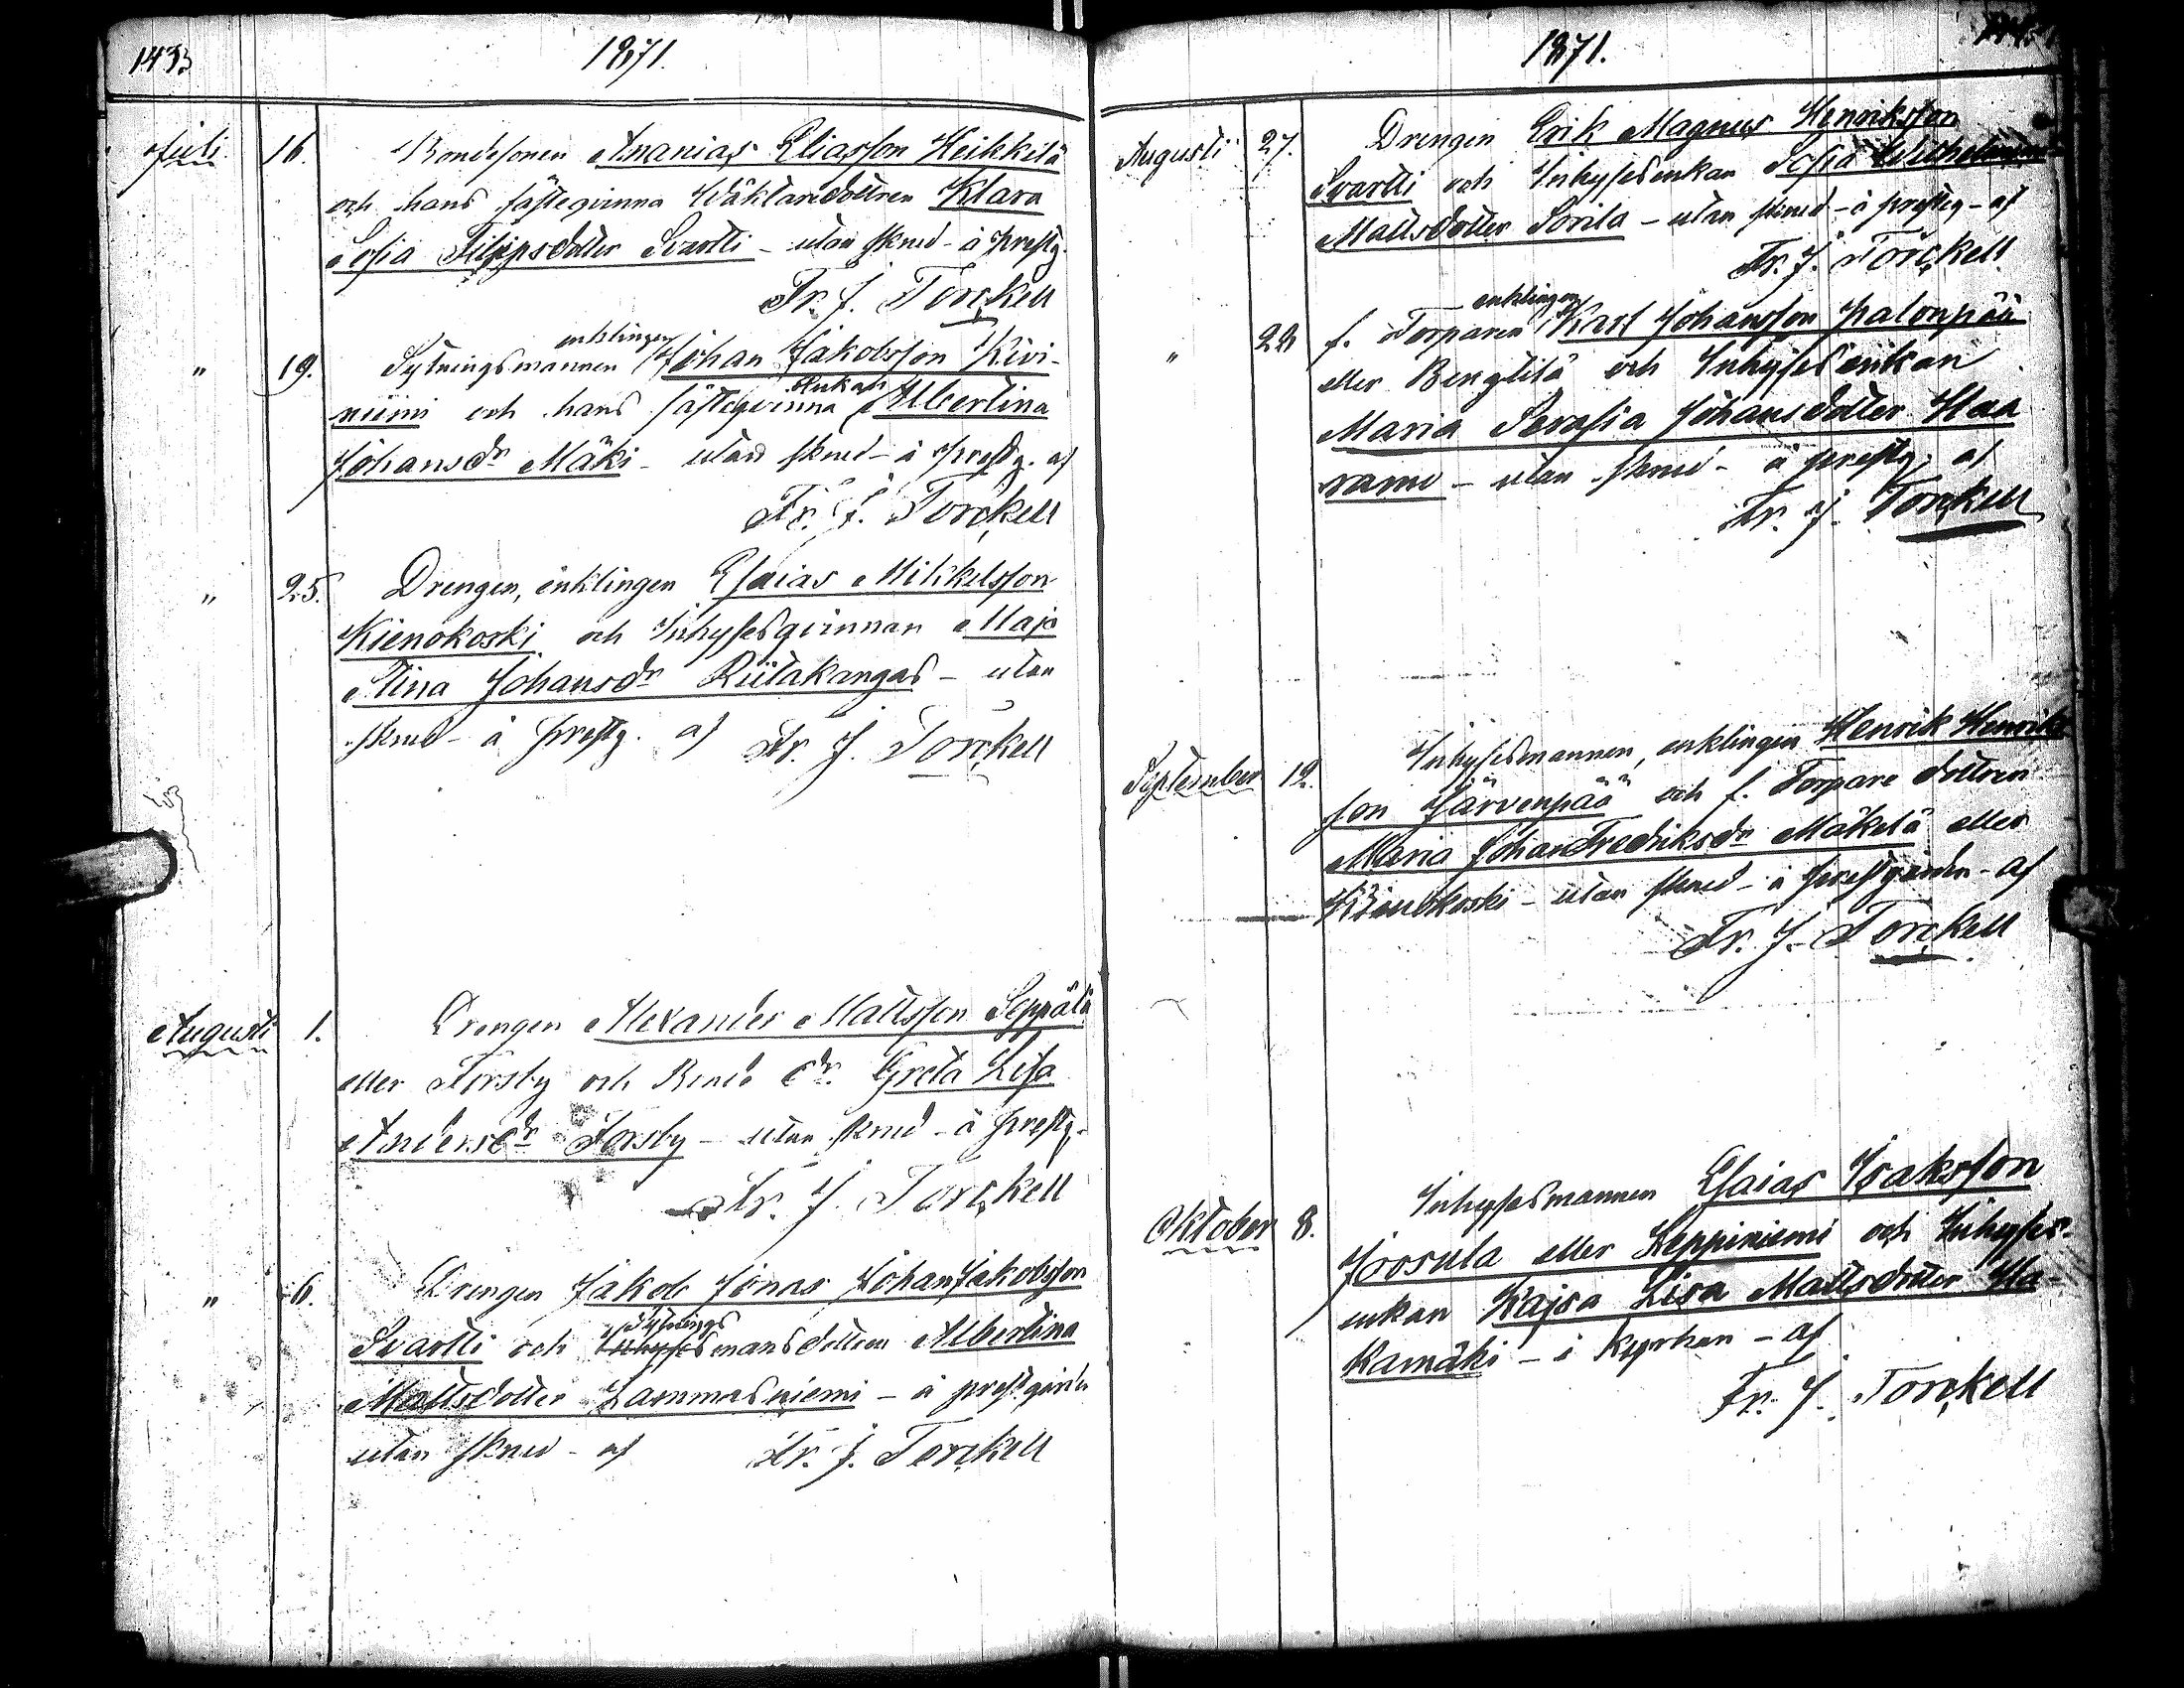 143
1871.
Juli 16. Bondesonen Ananias Eliasson Heikkilä
och hans fästeqvinna Wäktaredottren Klara
Sofia Filipsdotter Svartti - utan skrud - å prestg.
Fr. J. Torckell
enklingen
" 19. Sytningsmannen Johan Jakobsson Kivi-
niimi och hans fästeqvinna Enkan Albertina
Johansdr Mäki - utan skrud - å prestg. af
Fr. J. Torckell
" 25. Drengen, enklingen Esaias Mikkelsson
Kienokoski och Inhysesqvinnan Maja
Stina Johansdr Riitakangas - utan
skrud - å prestg. af Fr. J. Torckell
Augusti 1. Drengen Alexander Mattsson Seppälä
eller Forsby och Bonde dr. Greta Lisa
Andersdr Forsby - utan skrud - å prestg.
Fr. J. Torckell
" 6. Drengen Jakob Jonas JohanJakobsson
Sytnings
Svartti och Inhysesmansdottren Albertina
Mattsdotter Lammasniemi - å prestgården
utan skrud - af Fr. J. Torckell
1871.
Augusti 27. Drengen Erik Magnus Henriksson
Svartti och Inhysesenkan Sofia Wilhelmina
Mattsdotter Sorila - utan skrud - å prestg - af
Fr. J. Torckell
enklingen
" 22 f. Torparen Karl Johansson Palonpää
eller Bengtilä och Inhysesenkan
Maria Serafia Johansdotter Haa
ramo - utan skrud - å prestg. af
Fr. J. Torckell
September 12. Inhysesmannen, enklingen Henrik Henriks
son Järvenpää och f. Torpare dottren
Maria JohanFredriksdr Mäkelä eller
Kienokoski - utan skrud - å prestgården - af
Fr. J. Torckell
Oktober 8. Inhysesmannen Esaias Isaksson
Joosula eller Leppiniemi och Inhyses-
enkan Kajsa Lisa Mattsdotter Ha-
kamäki - i kyrkan - af
Fr. J. Torckell